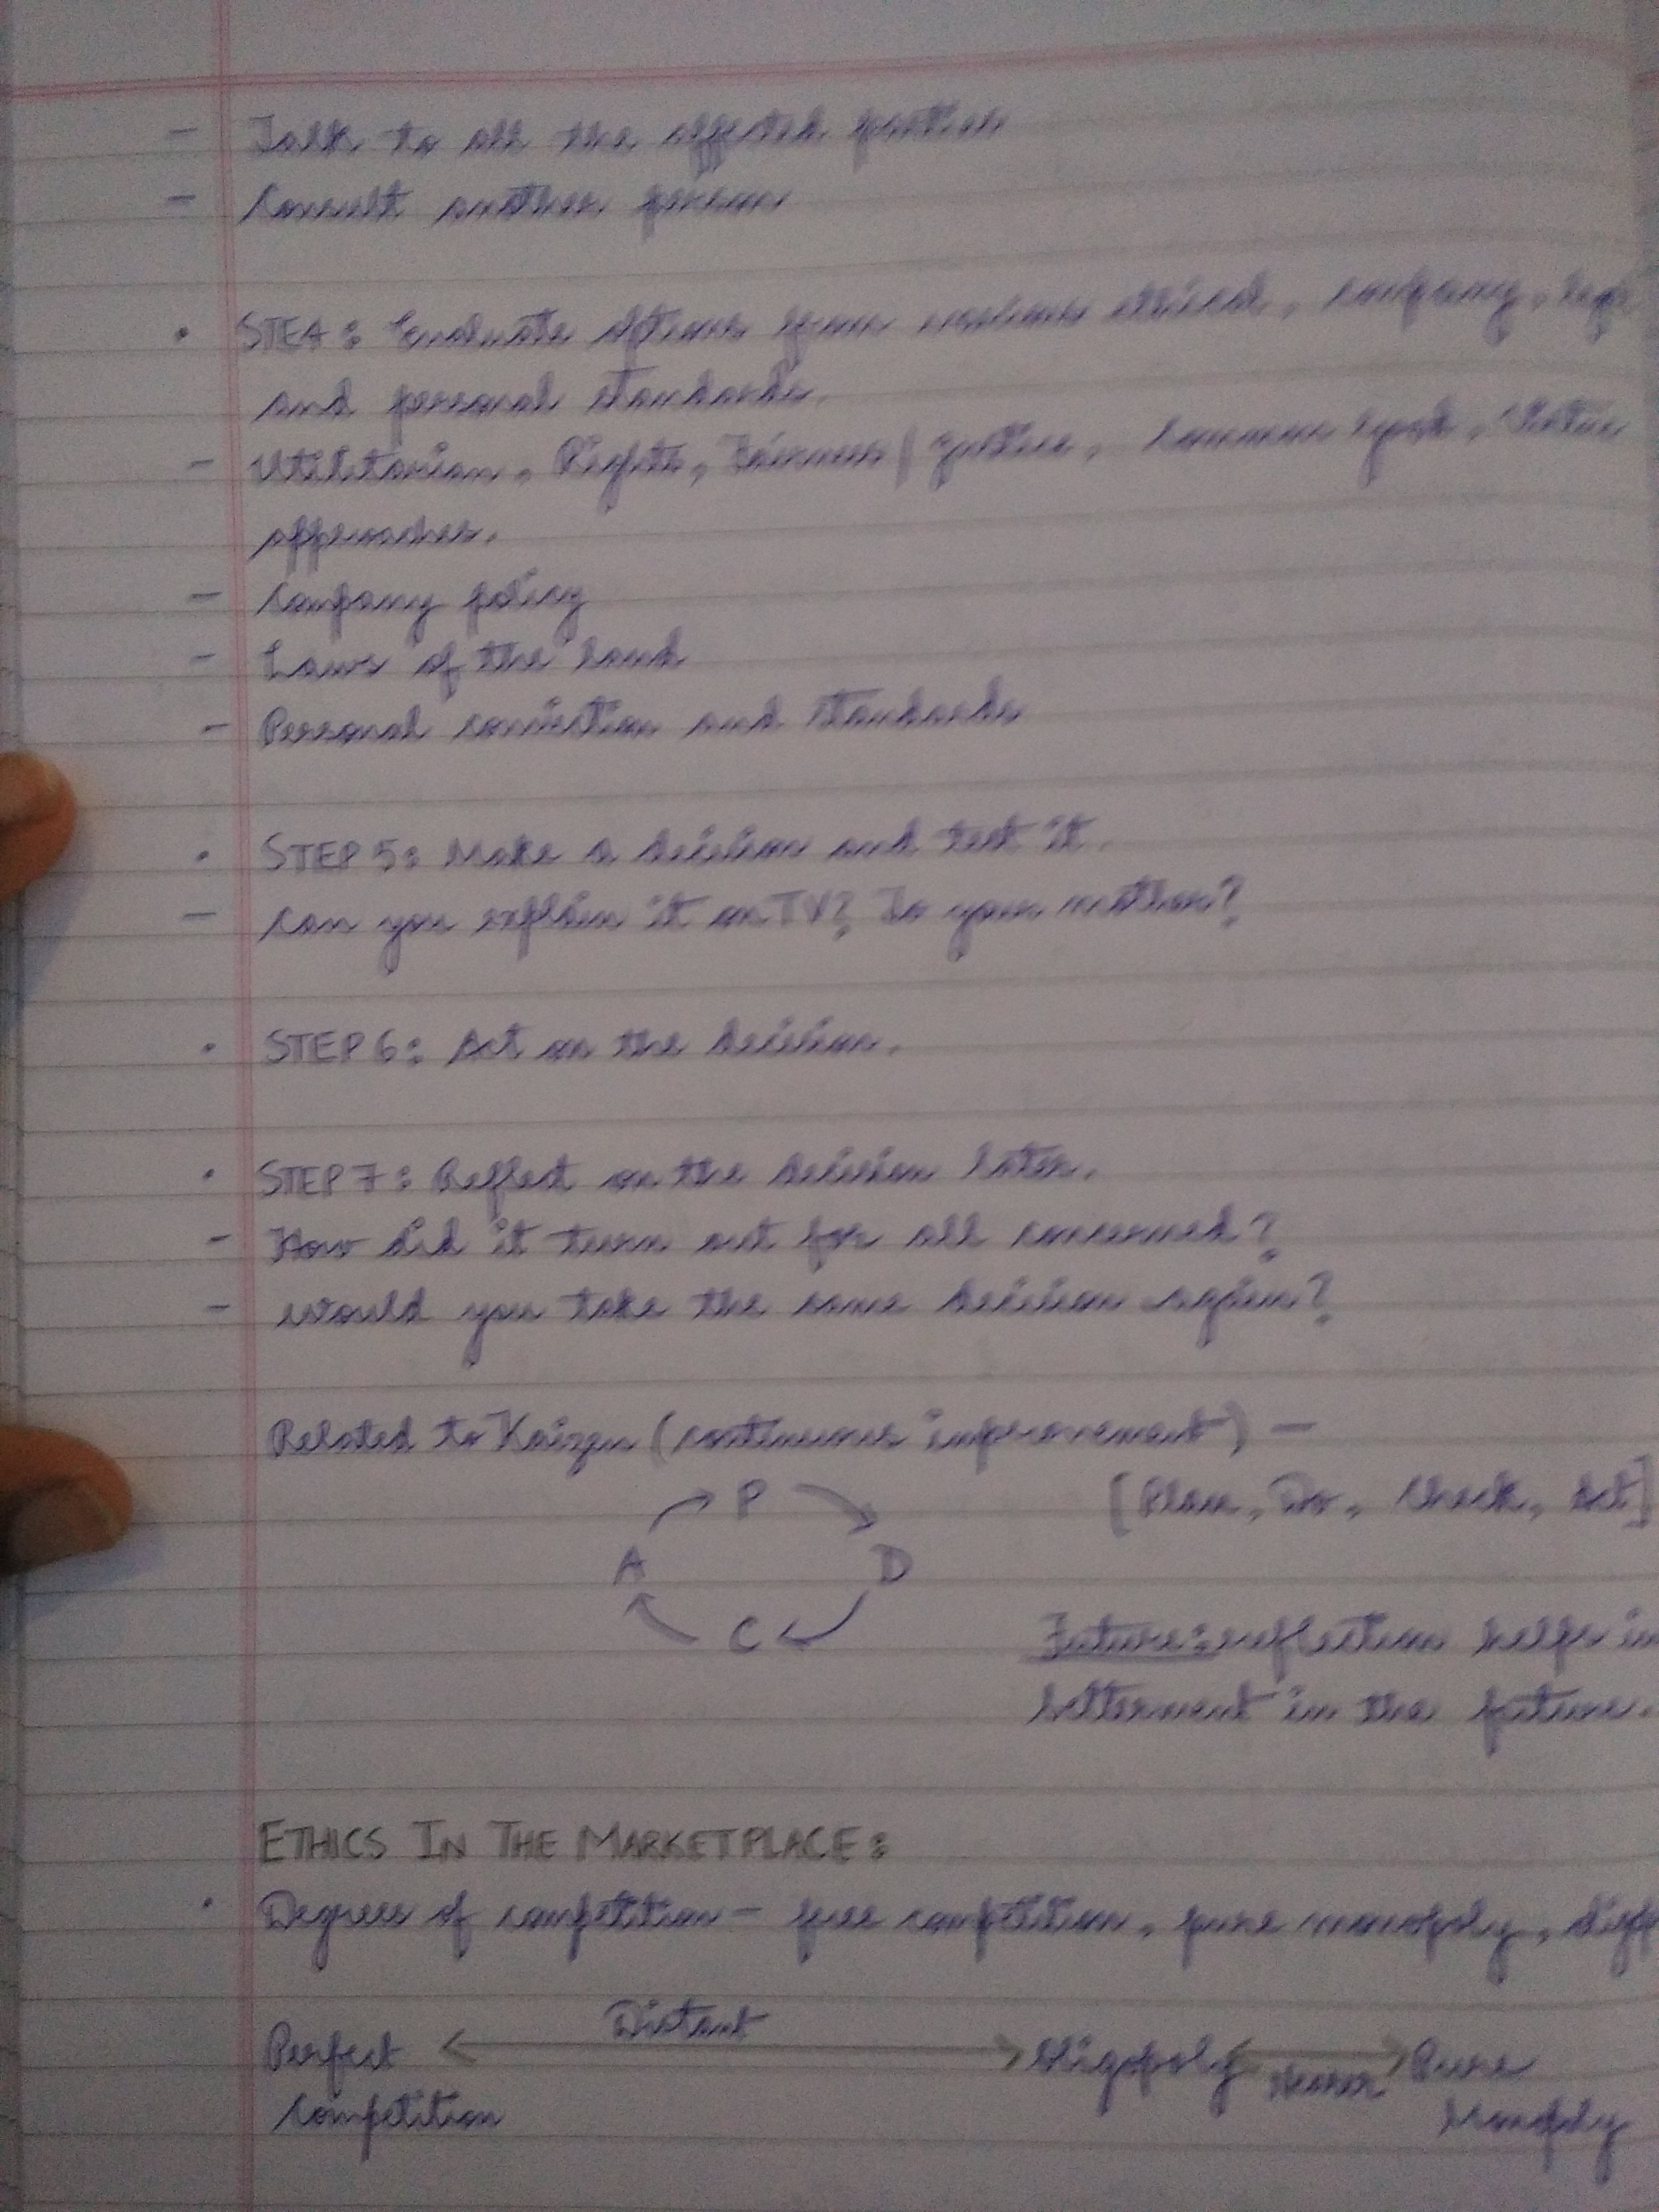 - Talk to all the affected parties
- Consult another person
• STE4: Evaluate options from various ethical, company,
and personal standards.
- Utilitarian, Rights, Fairness/Justice, Common good, Virtue
approaches.
- Company policy
- Laws of the land
- Personal conviction and standards
• STEP 5: Make a decision and test it.
- Can you explain it on TV? To your mother?
• STEP 6: Act on the decision.
• STEP 7: Reflect on the decision later.
- How did it turn out for all concerned?
- would you take the same decision again?
Related to Kaizen (continuous improvement) -
P [Plan, Do, Check, Act]
A D
C
Future: reflection helps in
betterment in the future.
ETHICS IN THE MARKETPLACE:
• Degree of competition - free competition, pure monopoly,
Distant
Perfect Oligopoly Nearer Pure
Competition Monopoly